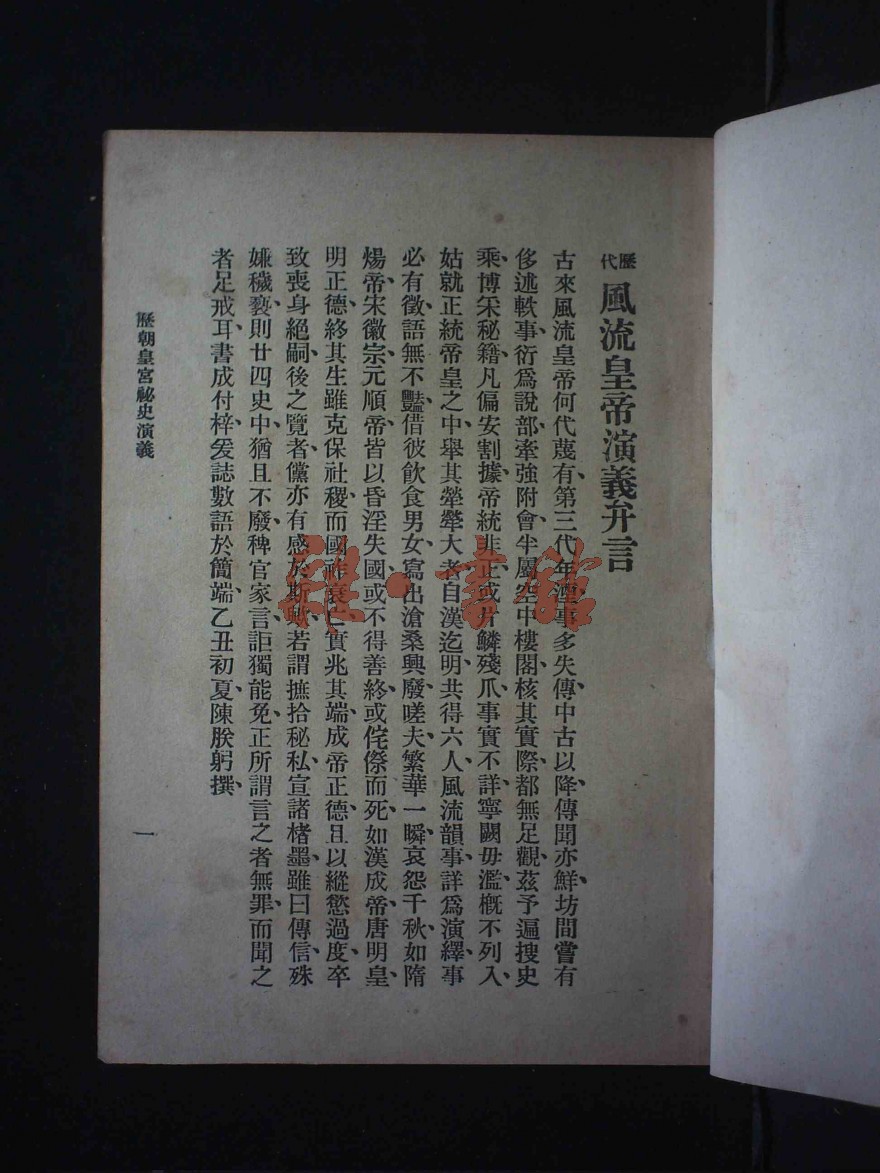 歷代風流皇帝演義弁言
古來風流皇帝何代蔑有、第三代年湮、事多失傳、中古以降、傳聞亦鮮、坊間嘗有
侈述軼事、衍爲說部、牽強附會、半屬空中樓閣、核其實際、都無足觀、茲予遍搜史
乘、博采秘籍、凡偏安割據、帝統非正、或片鱗殘爪、事實不詳、寧闕毋濫、槪不列入、
姑就正統帝皇之中、舉其犖犖大者、自漢迄明、共得六人、風流韻事、詳爲演繹、事
必有徵、語無不豔、借彼飲食男女、寫出滄桑興廢、嗟夫、繁華一瞬、哀怨千秋、如隋
煬帝宋徽宗元順帝、皆以昏淫失國、或不得善終、或侘傺而死、如漢成帝唐明皇、
明正德、終其生雖克保社稷、而國祚衰亡、實兆其端、成帝正德、且以縱慾過度、卒
致喪身絕嗣、後之覽者、儻亦有感於斯歟、若謂摭拾秘私、宣諸楮墨、雖曰傳信、殊
嫌穢褻、則廿四史中、猶且不廢、稗官家言、詎獨能免、正所謂言之者無罪、而聞之
者足戒耳、書成付梓、爰誌數語於簡端、乙丑初夏、陳朕躬撰、
歷朝皇宮祕史演義
一
雜·書館